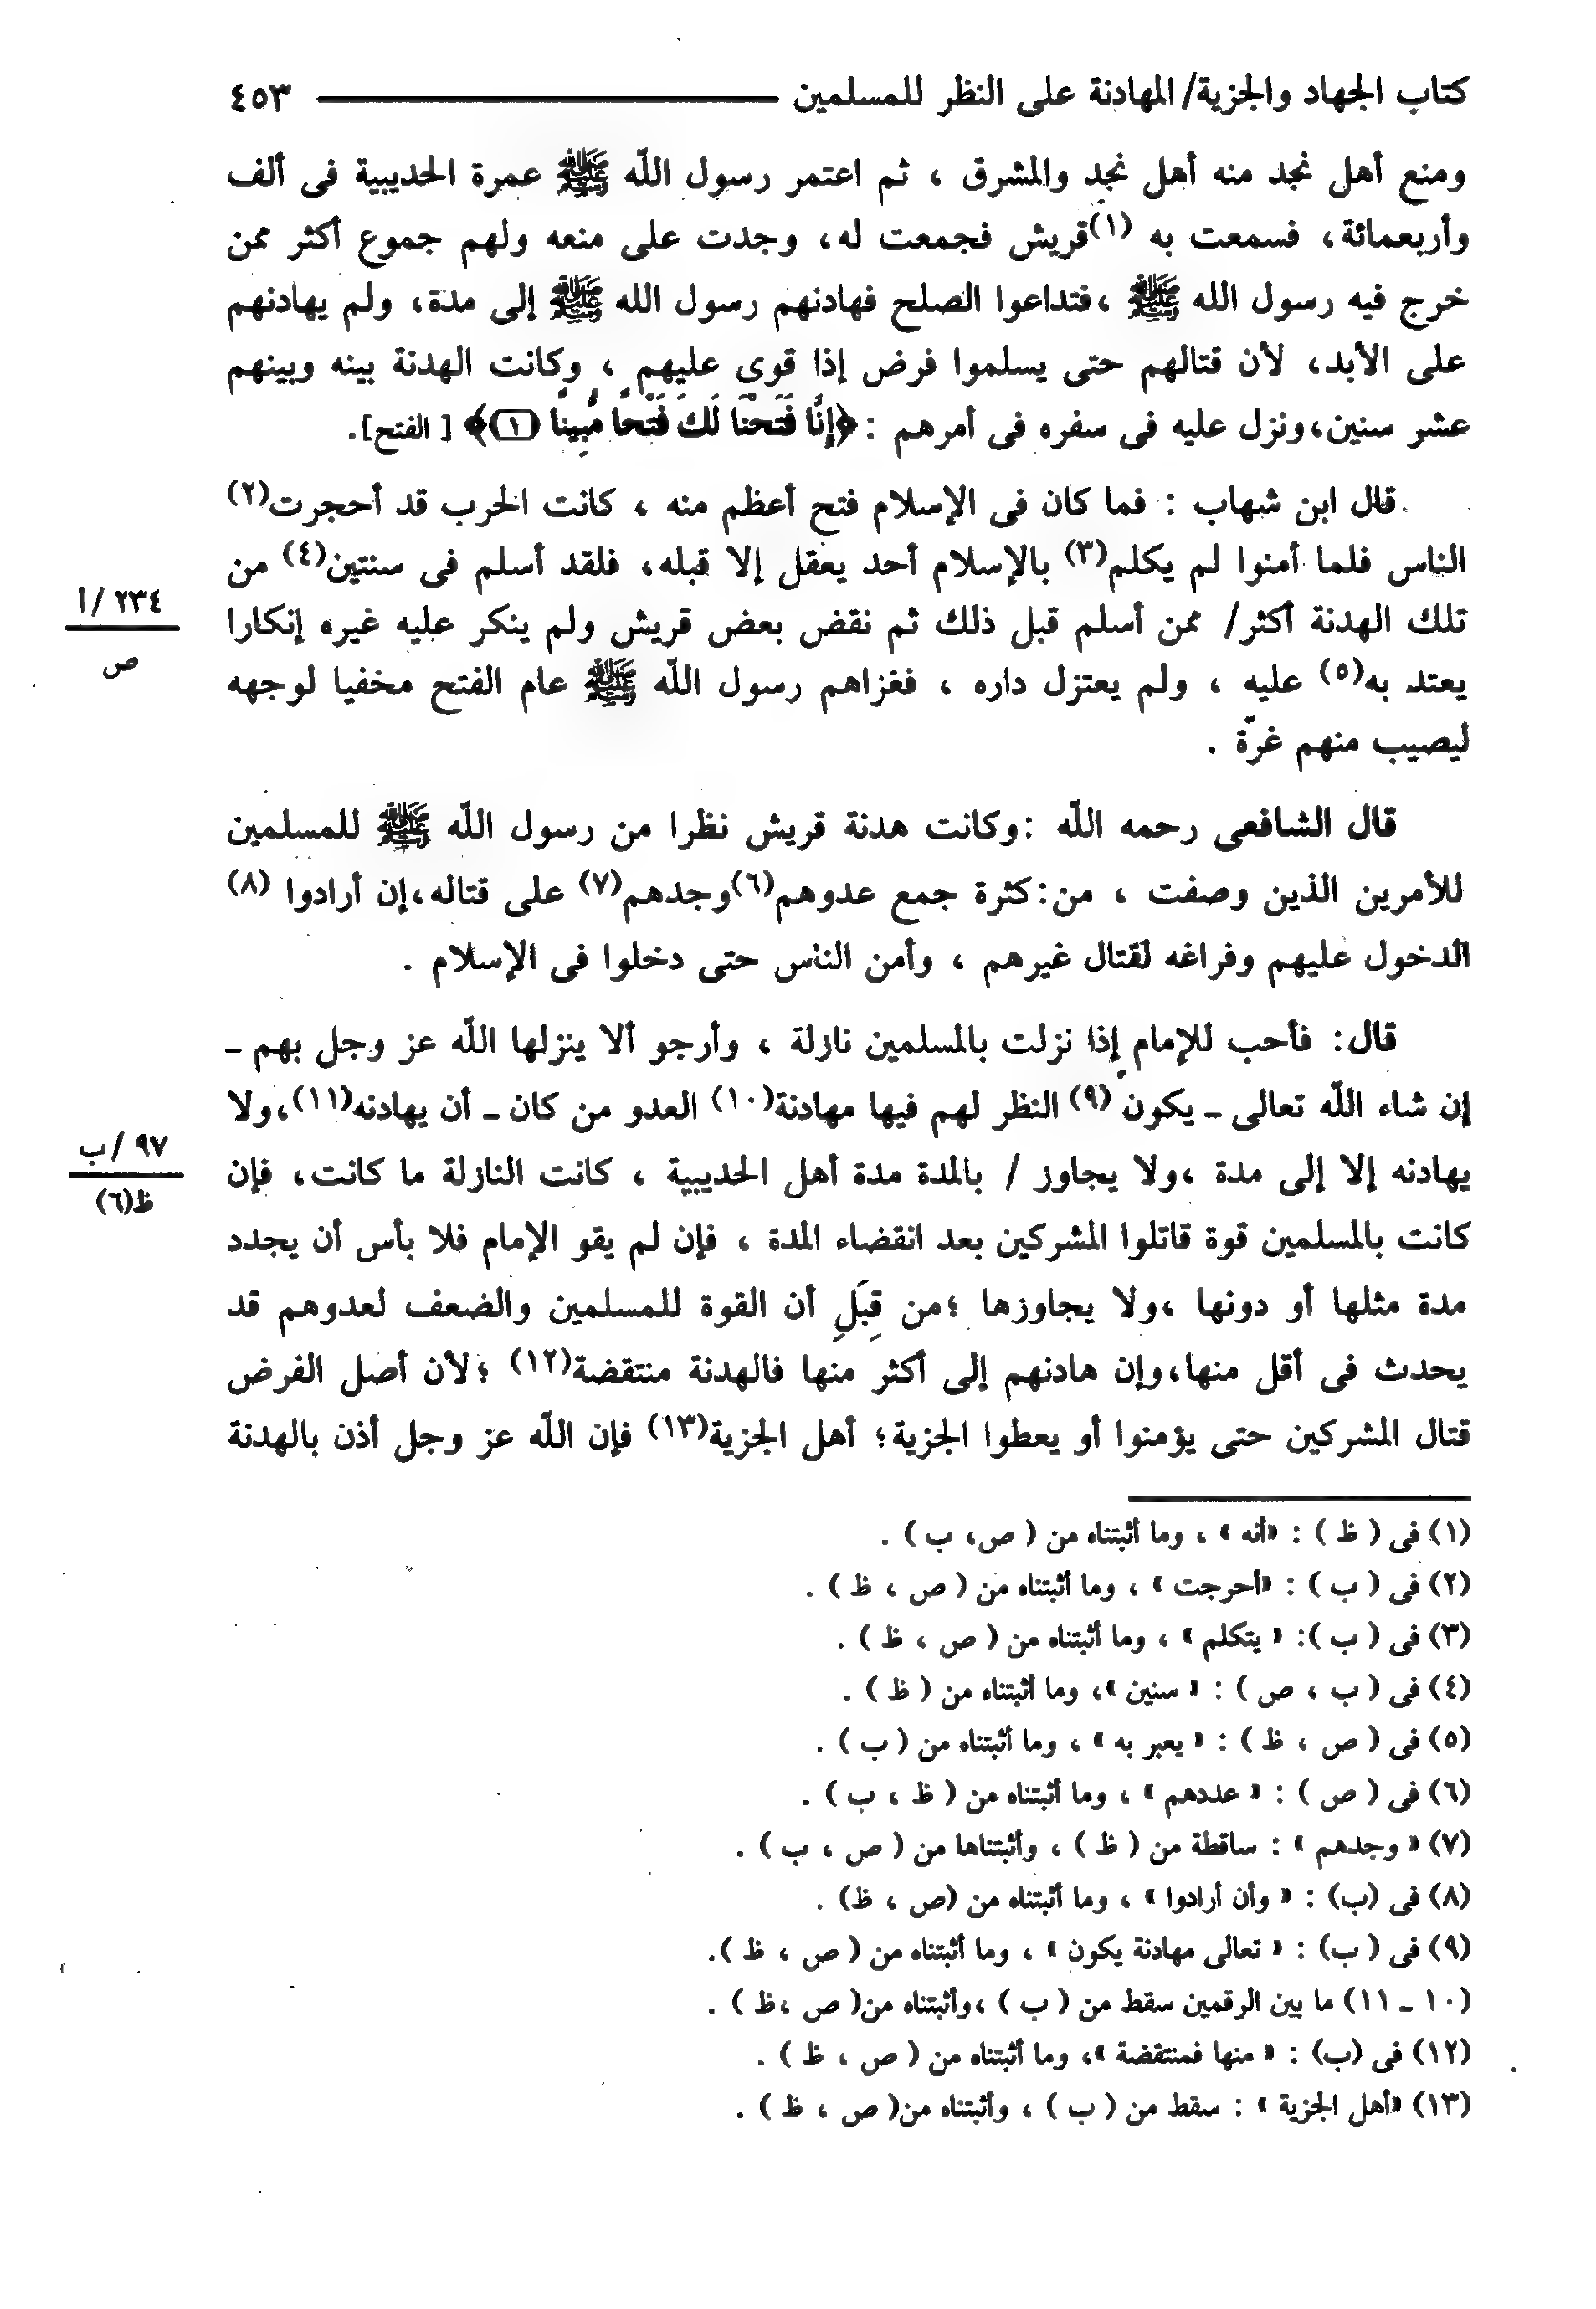 كتاب الجهاد والجزية/ المهادنة على النظر للمسلمين ـــــــــ ٤٥٣
ومنع أهل نجد منه أهل نجد والمشرق ، ثم اعتمر رسول اللّه ﷺ عمرة الحديبية فى ألف
وأربعمائة، فسمعت به (١)قريش فجمعت له، وجدت على منعه ولهم جموع أكثر ممن
خرج فيه رسول الله ﷺ ،فتداعوا الصلح فهادنهم رسول الله ﷺ إلى مدة، ولم يهادنهم
على الأبد، لأن قتالهم حتى يسلموا فرض إذا قوى عليهم ، وكانت الهدنة بينه وبينهم
عشر سنين،ونزل عليه فى سفره فى أمرهم : ﴿إِنَّا فَتَحْنَا لَكَ فَتْحًا مُّبِينًا (١)﴾ [ الفتح].
قال ابن شهاب : فما كان فى الإسلام فتح أعظم منه ، كانت الحرب قد أحجرت(٢)
الناس فلما أمنوا لم يكلم(٣) بالإسلام أحد يعقل إلا قبله، فلقد أسلم فى سنتين(٤) من
تلك الهدنة أكثر/ ممن أسلم قبل ذلك ثم نقض بعض قريش ولم ينكر عليه غيره إنكارا
٢٣٤ /أ
ص
يعتد به(٥) عليه ، ولم يعتزل داره ، فغزاهم رسول اللّه ﷺ عام الفتح مخفيا لوجهه
ليصيب منهم غرّة .
قال الشافعى رحمه اللّه :وكانت هدنة قريش نظرا من رسول اللّه ﷺ للمسلمين
للأمرين الذين وصفت ، من:كثرة جمع عدوهم(٦)وجدهم(٧) على قتاله،إن أرادوا (٨)
الدخول عليهم وفراغه لقتال غيرهم ، وأمن الناس حتى دخلوا فى الإسلام .
قال: فأحب للإمام إذا نزلت بالمسلمين نازلة ، وأرجو ألا ينزلها اللّه عز وجل بهم ـ
إن شاء اللّه تعالى ـ يكون (٩) النظر لهم فيها مهادنة(١٠) العدو من كان ـ أن يهادنه(١١)،ولا
٩٧ /ب
ظ(٦)
يهادنه إلا إلى مدة ،ولا يجاوز / بالمدة مدة أهل الحديبية ، كانت النازلة ما كانت، فإن
كانت بالمسلمين قوة قاتلوا المشركين بعد انقضاء المدة ، فإن لم يقو الإمام فلا بأس أن يجدد
مدة مثلها أو دونها ،ولا يجاوزها ؛من قِبَلِ أن القوة للمسلمين والضعف لعدوهم قد
يحدث فى أقل منها،وإن هادنهم إلى أكثر منها فالهدنة منتقضة(١٢) ؛لأن أصل الفرض
قتال المشركين حتى يؤمنوا أو يعطوا الجزية؛ أهل الجزية(١٣) فإن اللّه عز وجل أذن بالهدنة
(١) فى ( ظ ) : «أنه » ، وما أثبتناه من ( ص، ب ) .
(٢) فى ( ب ) : «أحرجت » ، وما أثبتناه من ( ص ، ظ ) .
(٣) فى ( ب ): « يتكلم » ، وما أثبتناه من ( ص ، ظ ) .
(٤) فى ( ب ، ص ) : « سنين »، وما أثبتناه من ( ظ ) .
(٥) فى ( ص ، ظ ) : « يعبر به » ، وما أثبتناه من ( ب ) .
(٦) فى ( ص ) : « عددهم » ، وما أثبتناه من ( ظ ، ب ) .
(٧) « وجدهم » : ساقطة من ( ظ ) ، وأثبتناها من ( ص ، ب ) .
(٨) فى (ب) : « وأن أرادوا » ، وما أثبتناه من (ص ، ظ) .
(٩) فى ( ب) : « تعالى مهادنة يكون » ، وما أثبتناه من ( ص ، ظ ).
(١٠ ـ ١١) ما بين الرقمين سقط من ( ب ) ،وأثبتناه من( ص ،ظ ) .
(١٢) فى (ب) : « منها فمنتقضة »، وما أثبتناه من ( ص ، ظ ) .
(١٣) «أهل الجزية » : سقط من ( ب ) ، وأثبتناه من( ص ، ظ ) .